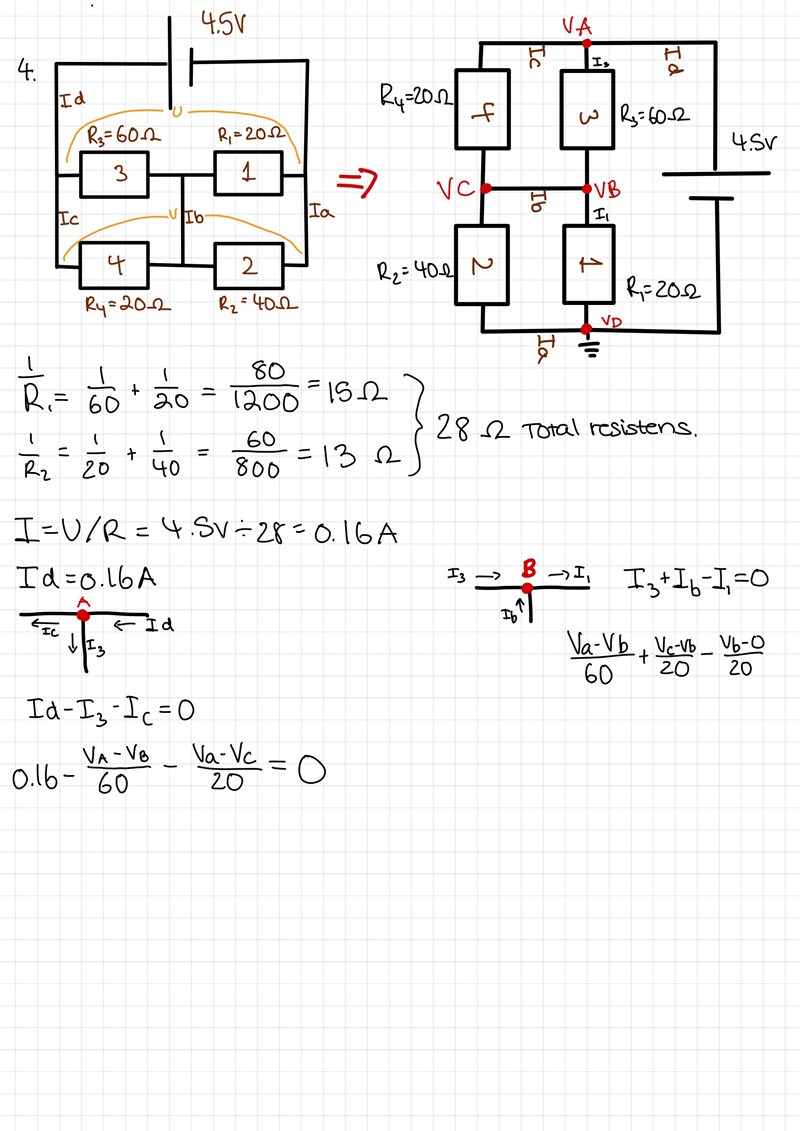 4.
4.5V
Id
U
R3=60Ω
R1=20Ω
3
1
Ic
U
Ib
Ia
4
2
R4=20Ω
R2=40Ω
⇒
VA
Ic
I3
Id
R4=20Ω
4
3
R3=60Ω
4.5V
VC
Ib
VB
I1
R2=40Ω
2
1
R1=20Ω
VD
Ia
1/R1 = 1/60 + 1/20 = 80/1200 = 15 Ω
1/R2 = 1/20 + 1/40 = 60/800 = 13 Ω
} 28 Ω Total resistens.
I=U/R = 4.5V÷28=0.16A
Id=0.16A
A
Ic ← ← Id
↓ I3
Id-I3-Ic=0
0.16 - (VA-VB)/60 - (Va-Vc)/20 = 0
I3 → B → I1
Ib ↑
I3+Ib-I1=0
(Va-Vb)/60 + (Vc-Vb)/20 - (Vb-0)/20